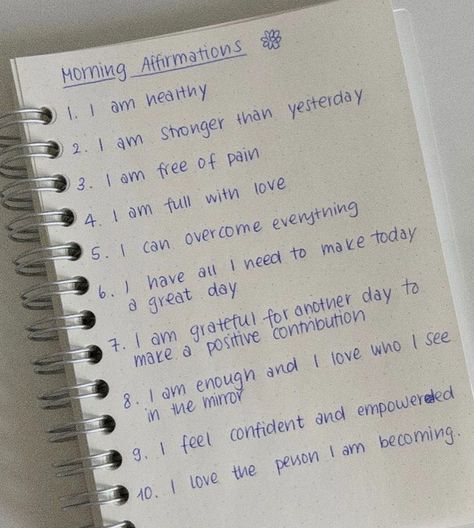 Morning Affirmations
1. I am healthy
2. I am stronger than yesterday
3. I am free of pain
4. I am full with love
5. I can overcome everything
6. I have all I need to make today
a great day
7. I am grateful for another day to
make a positive contribution
8. I am enough and I love who I see
in the mirror
9. I feel confident and empowereded
10. I love the person I am becoming.